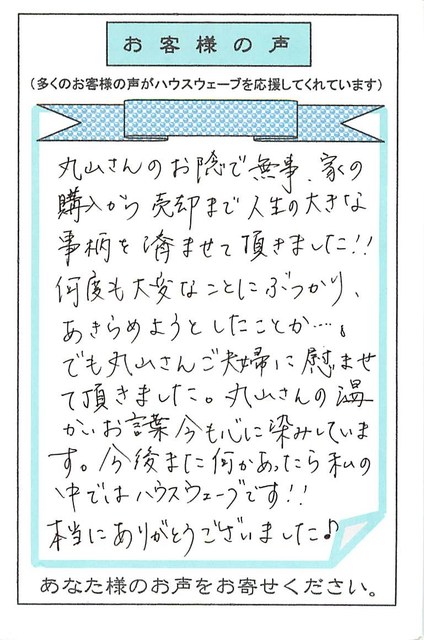 お客様の声
（多くのお客様の声がハウスウェーブを応援してくれています）
丸山さんのお陰で無事、家の
購入から売却まで人生の大きな
事柄を済ませて頂きました!!
何度も大変なことにぶつかり、
あきらめようとしたことか…。
でも丸山さんご夫婦に慰ませ
て頂きました。丸山さんの温
かいお言葉今も心に染みしていま
す。今後また何かあったら私の
中ではハウスウェーブです!!
本当にありがとうございました♪
あなた様のお声をお寄せください。